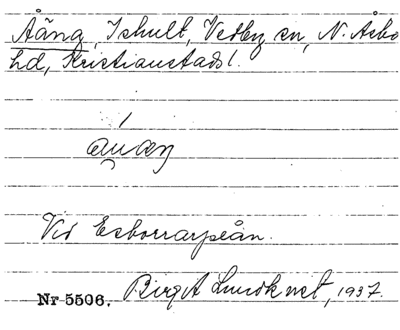 Åäng, Ishult, Vedby sn, N. Åsbo
hd, Kristianstads l.
Vid Esborrarpeån.
Nr 5506. Birgit Lundkvist, 1937.